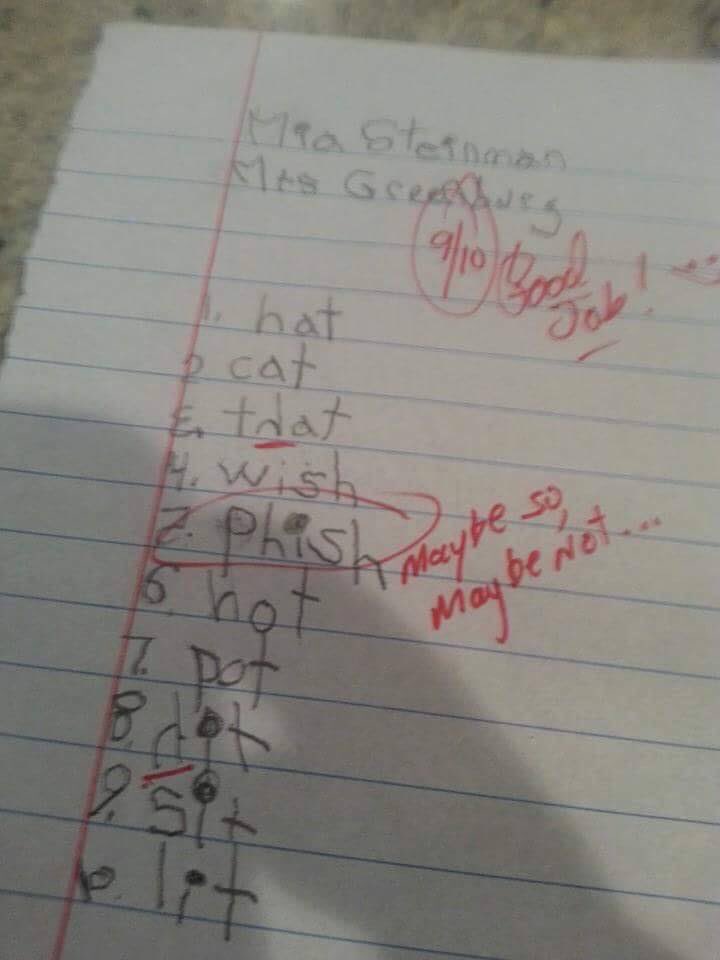 Mia Steinman
Mrs
9/10 Good
Job!
1. hat
2. cat
3. tdat
4. wish
5. phish
Maybe so,
maybe not...
6. hot
7. pot
8. dit
9. sit
10. lit